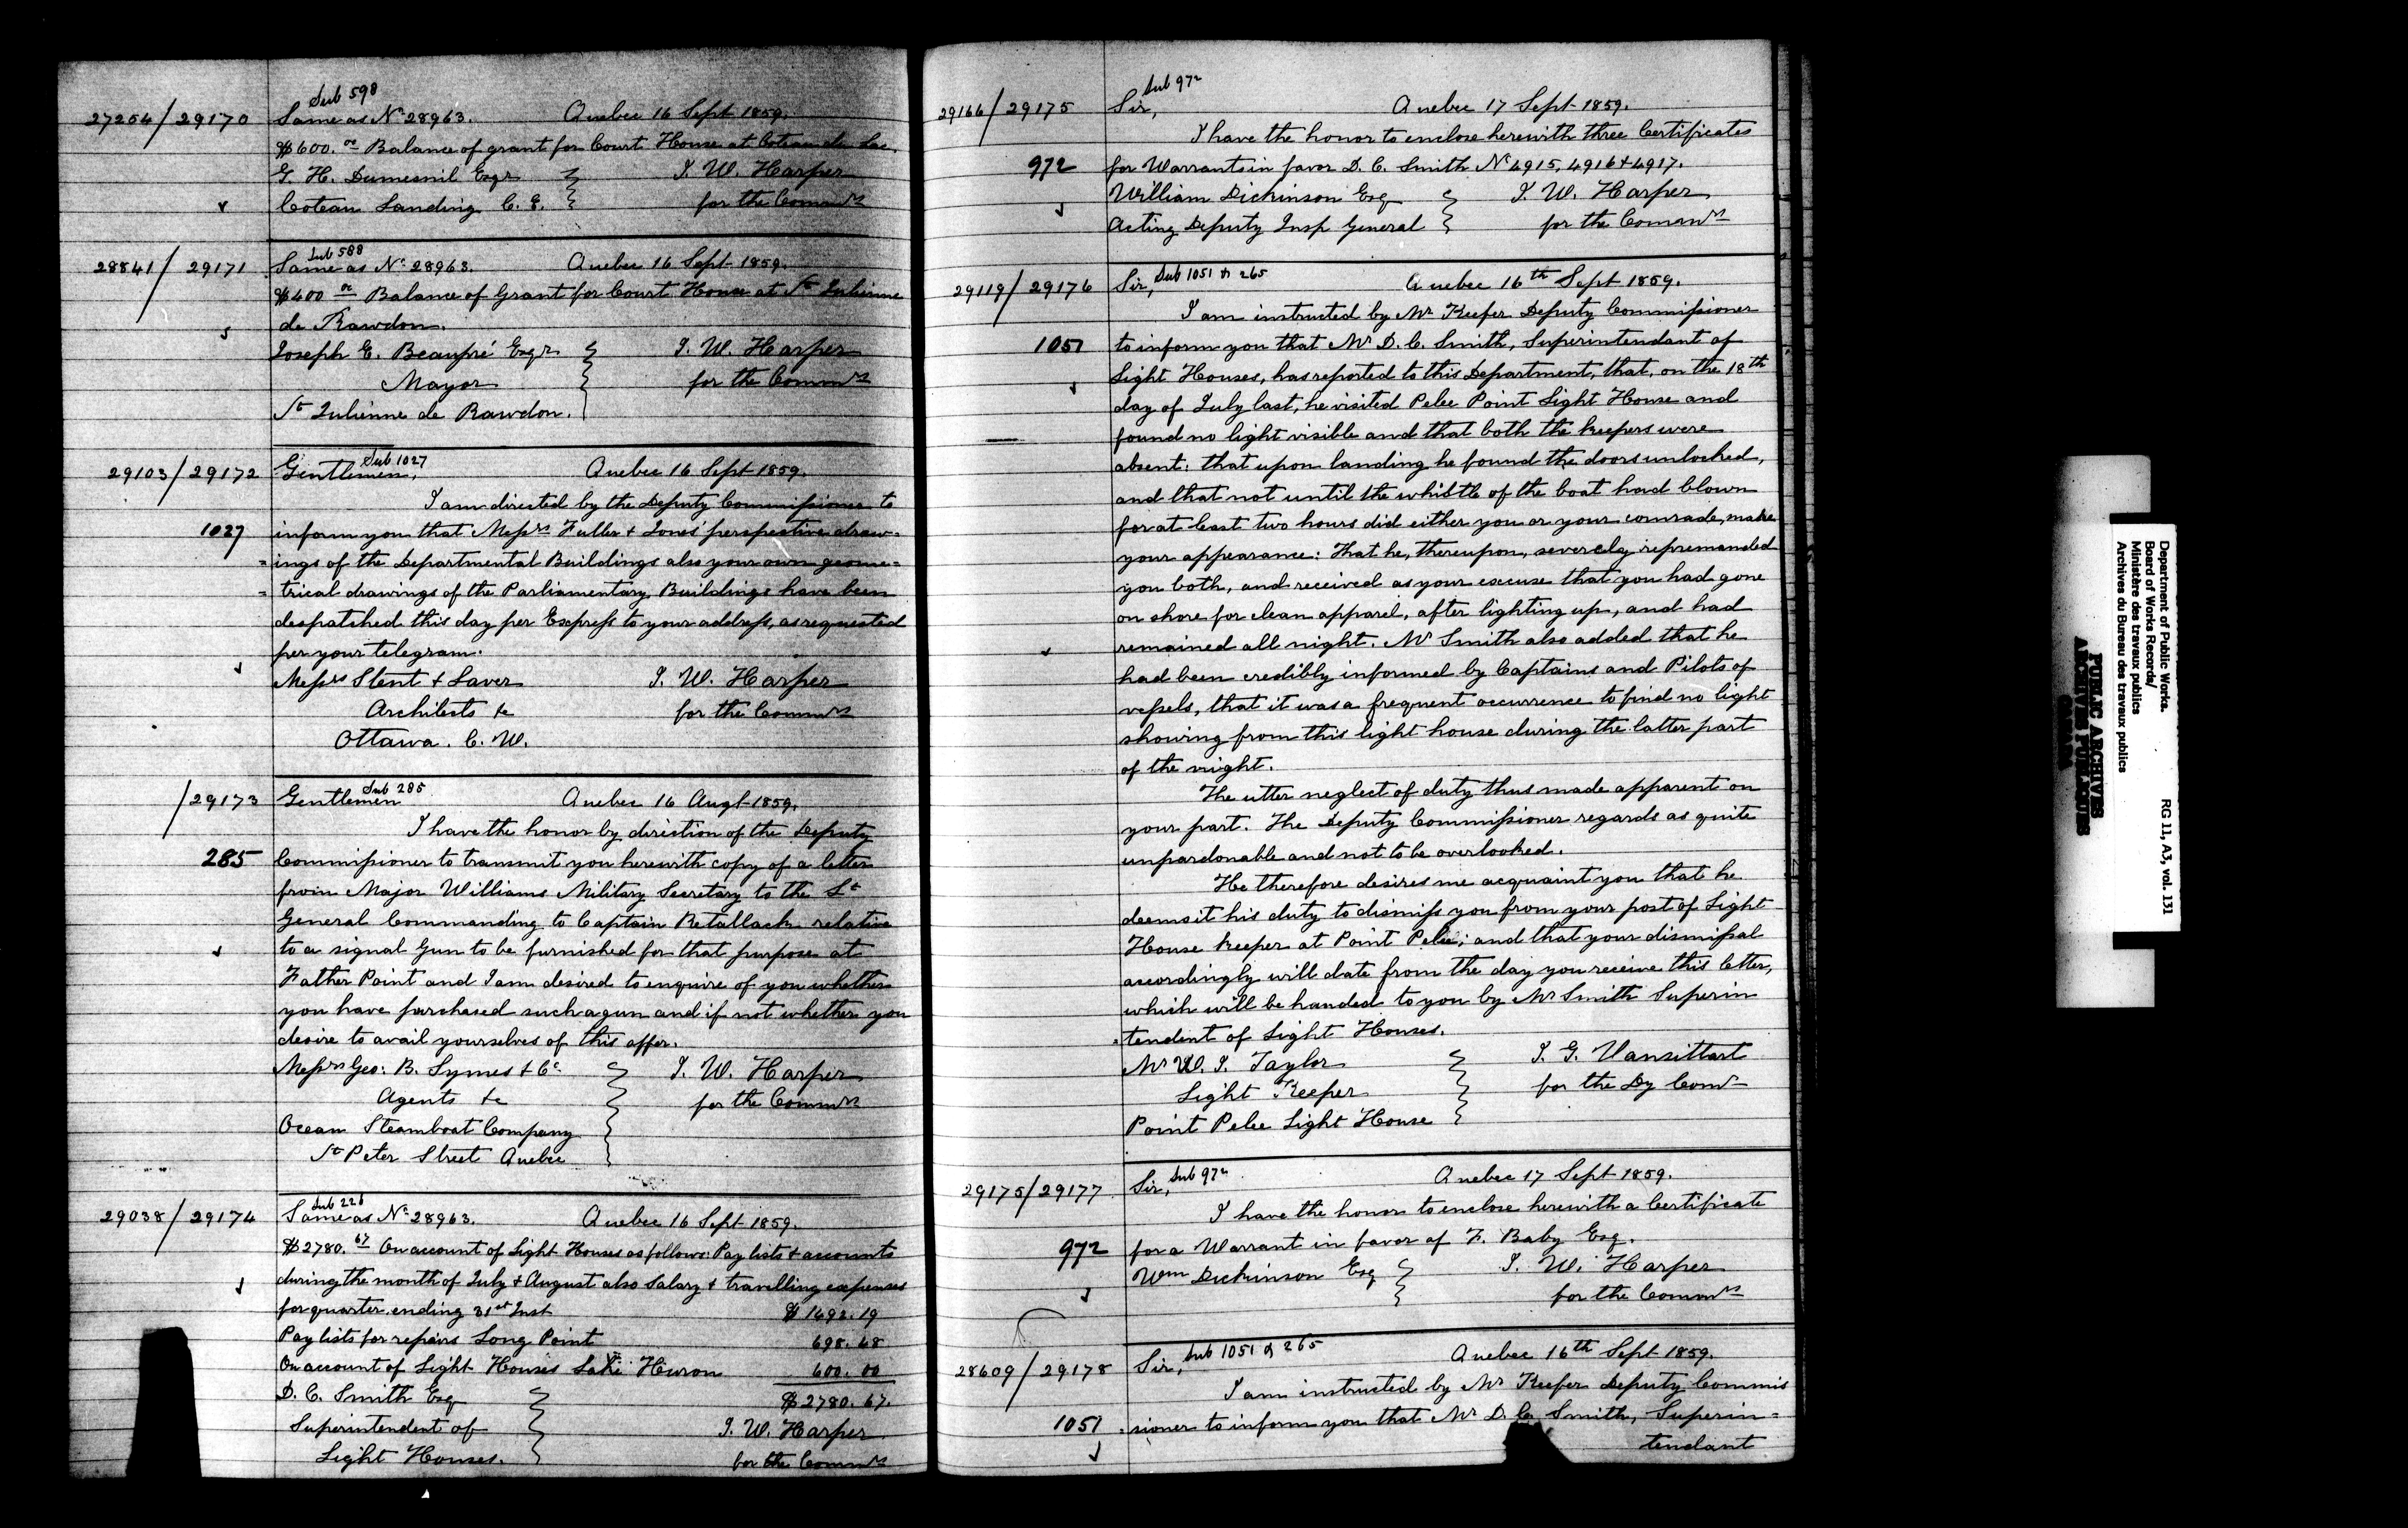 Sub 598
27254/29170 Same as No 28963. Quebec 16 Sept 1859.
$600.00 Balance of grant for Court House at Coteau du Lac.
G. H. Dumesnil Esqr J. W. Harper
Coteau Landing C. E. for the Commrs
Sub 588
28841/29171 Same as No 28963. Quebec 16 Sept 1859.
$400 00 Balance of Grant for Court House at St Julienne
de Rawdon.
Joseph E. Beaupré Esqr J. W. Harper
Mayor for the Commrs
St Julienne de Rawdon.
Sub 1027
29103/29172 Gentlemen, Quebec 16 Sept 1859.
I am directed by the Deputy Commissioner to
1027 inform you that Messrs Fuller & Jones' perspective draw=
=ings of the Departmental Buildings also your own geome=
=trical drawings of the Parliamentary Buildings have been
despatched this day per Express to your address, as requested
per your telegram.
Messrs Stent & Laver J. W. Harper
Architects &c for the Commrs
Ottawa. C. W.
Sub 285
/29173 Gentlemen Quebec 16 Augt 1859.
I have the honor by direction of the Deputy
285 Commissioner to transmit you herewith copy of a letter
from Major Williams Military Secretary to the Lt
General Commanding to Captain Retallack relative
to a signal Gun to be furnished for that purpose at
Father Point and I am desired to enquire of you whether
you have purchased such a gun and if not whether you
desire to avail yourselves of this offer.
Messrs Geo: B. Symes & Co J. W. Harper
Agents &c for the Commrs
Ocean Steamboat Company
St Peter Street Quebec
Sub 226
29038/29174 Same as No 28963. Quebec 16 Sept 1859.
$2780.67 On account of Light Houses as follows: Pay lists & accounts
during the month of July & August also Salary & travelling expenses
for quarter ending 31st Inst $ 1492.19
Pay lists for repairs Long Point 698.48
On account of Light Houses Lake Huron 600.00
D. C. Smith Esq $2780.67.
Superintendent of J. W. Harper
Light Houses. for the Commrs
Sub 972
29166/29175 Sir, Quebec 17 Sept 1859.
I have the honor to enclose herewith three Certificates
972 for Warrants in favor D. C. Smith No 4915, 4916 & 4917.
William Dickinson Esq J. W. Harper
Acting Deputy Insp General for the Comanrs
29119/29176 Sir, Sub 1051 & 265 Quebec 16th Sept 1859.
I am instructed by Mr Keefer Deputy Commissioner
1051 to inform you that Mr D. C. Smith, Superintendant of
Light Houses, has reported to this Department, that, on the 18th
day of July last, he visited Pelee Point Light House and
found no light visible and that both the keepers were
absent: that upon landing he found the doors unlocked,
and that not until the whistle of the boat had blown
for at least two hours did either you or your comrade, make
your appearance: That he, thereupon, severely repremanded
you both, and received as your excuse that you had gone
on shore for clean apparel, after lighting up, and had
remained all night. Mr Smith also added that he
had been credibly informed by Captains and Pilots of
vessels, that it was a frequent occurrence to find no light
showing from this light house during the latter part
of the night.
The utter neglect of duty thus made apparent on
your part. The Deputy Commissioner regards as quite
unpardonable and not to be overlooked.
He therefore desires me acquaint you that he
deems it his duty to dismiss you from your post of Light
House keeper at Point Pelee; and that your dismissal
accordingly will date from the day you receive this letter,
which will be handed to you by Mr Smith Superin
=tendent of Light Houses.
Mr W. J. Taylor J. G. Vansittart
Light Keeper for the Dy Comr
Point Pelee Light House
29175/29177 Sir, Sub 972 Quebec 17 Sept 1859.
I have the honor to enclose herewith a Certificate
972 for a Warrant in favor of F. Baby Esq.
Wm Dickinson Esq J. W. Harper
for the Commrs
28609/29178 Sir, Sub 1051 & 265 Quebec 16th Sept 1859.
I am instructed by Mr Keefer Deputy Commis
1051 =sioner to inform you that Mr D. C. Smith, Superin=
tendant
Department of Public Works.
Board of Works Records/
Ministère des travaux publics
Archives du Bureau des travaux publics
RG 11, A3, vol. 131
PUBLIC ARCHIVES
ARCHIVES PUBLIQUES
CANADA